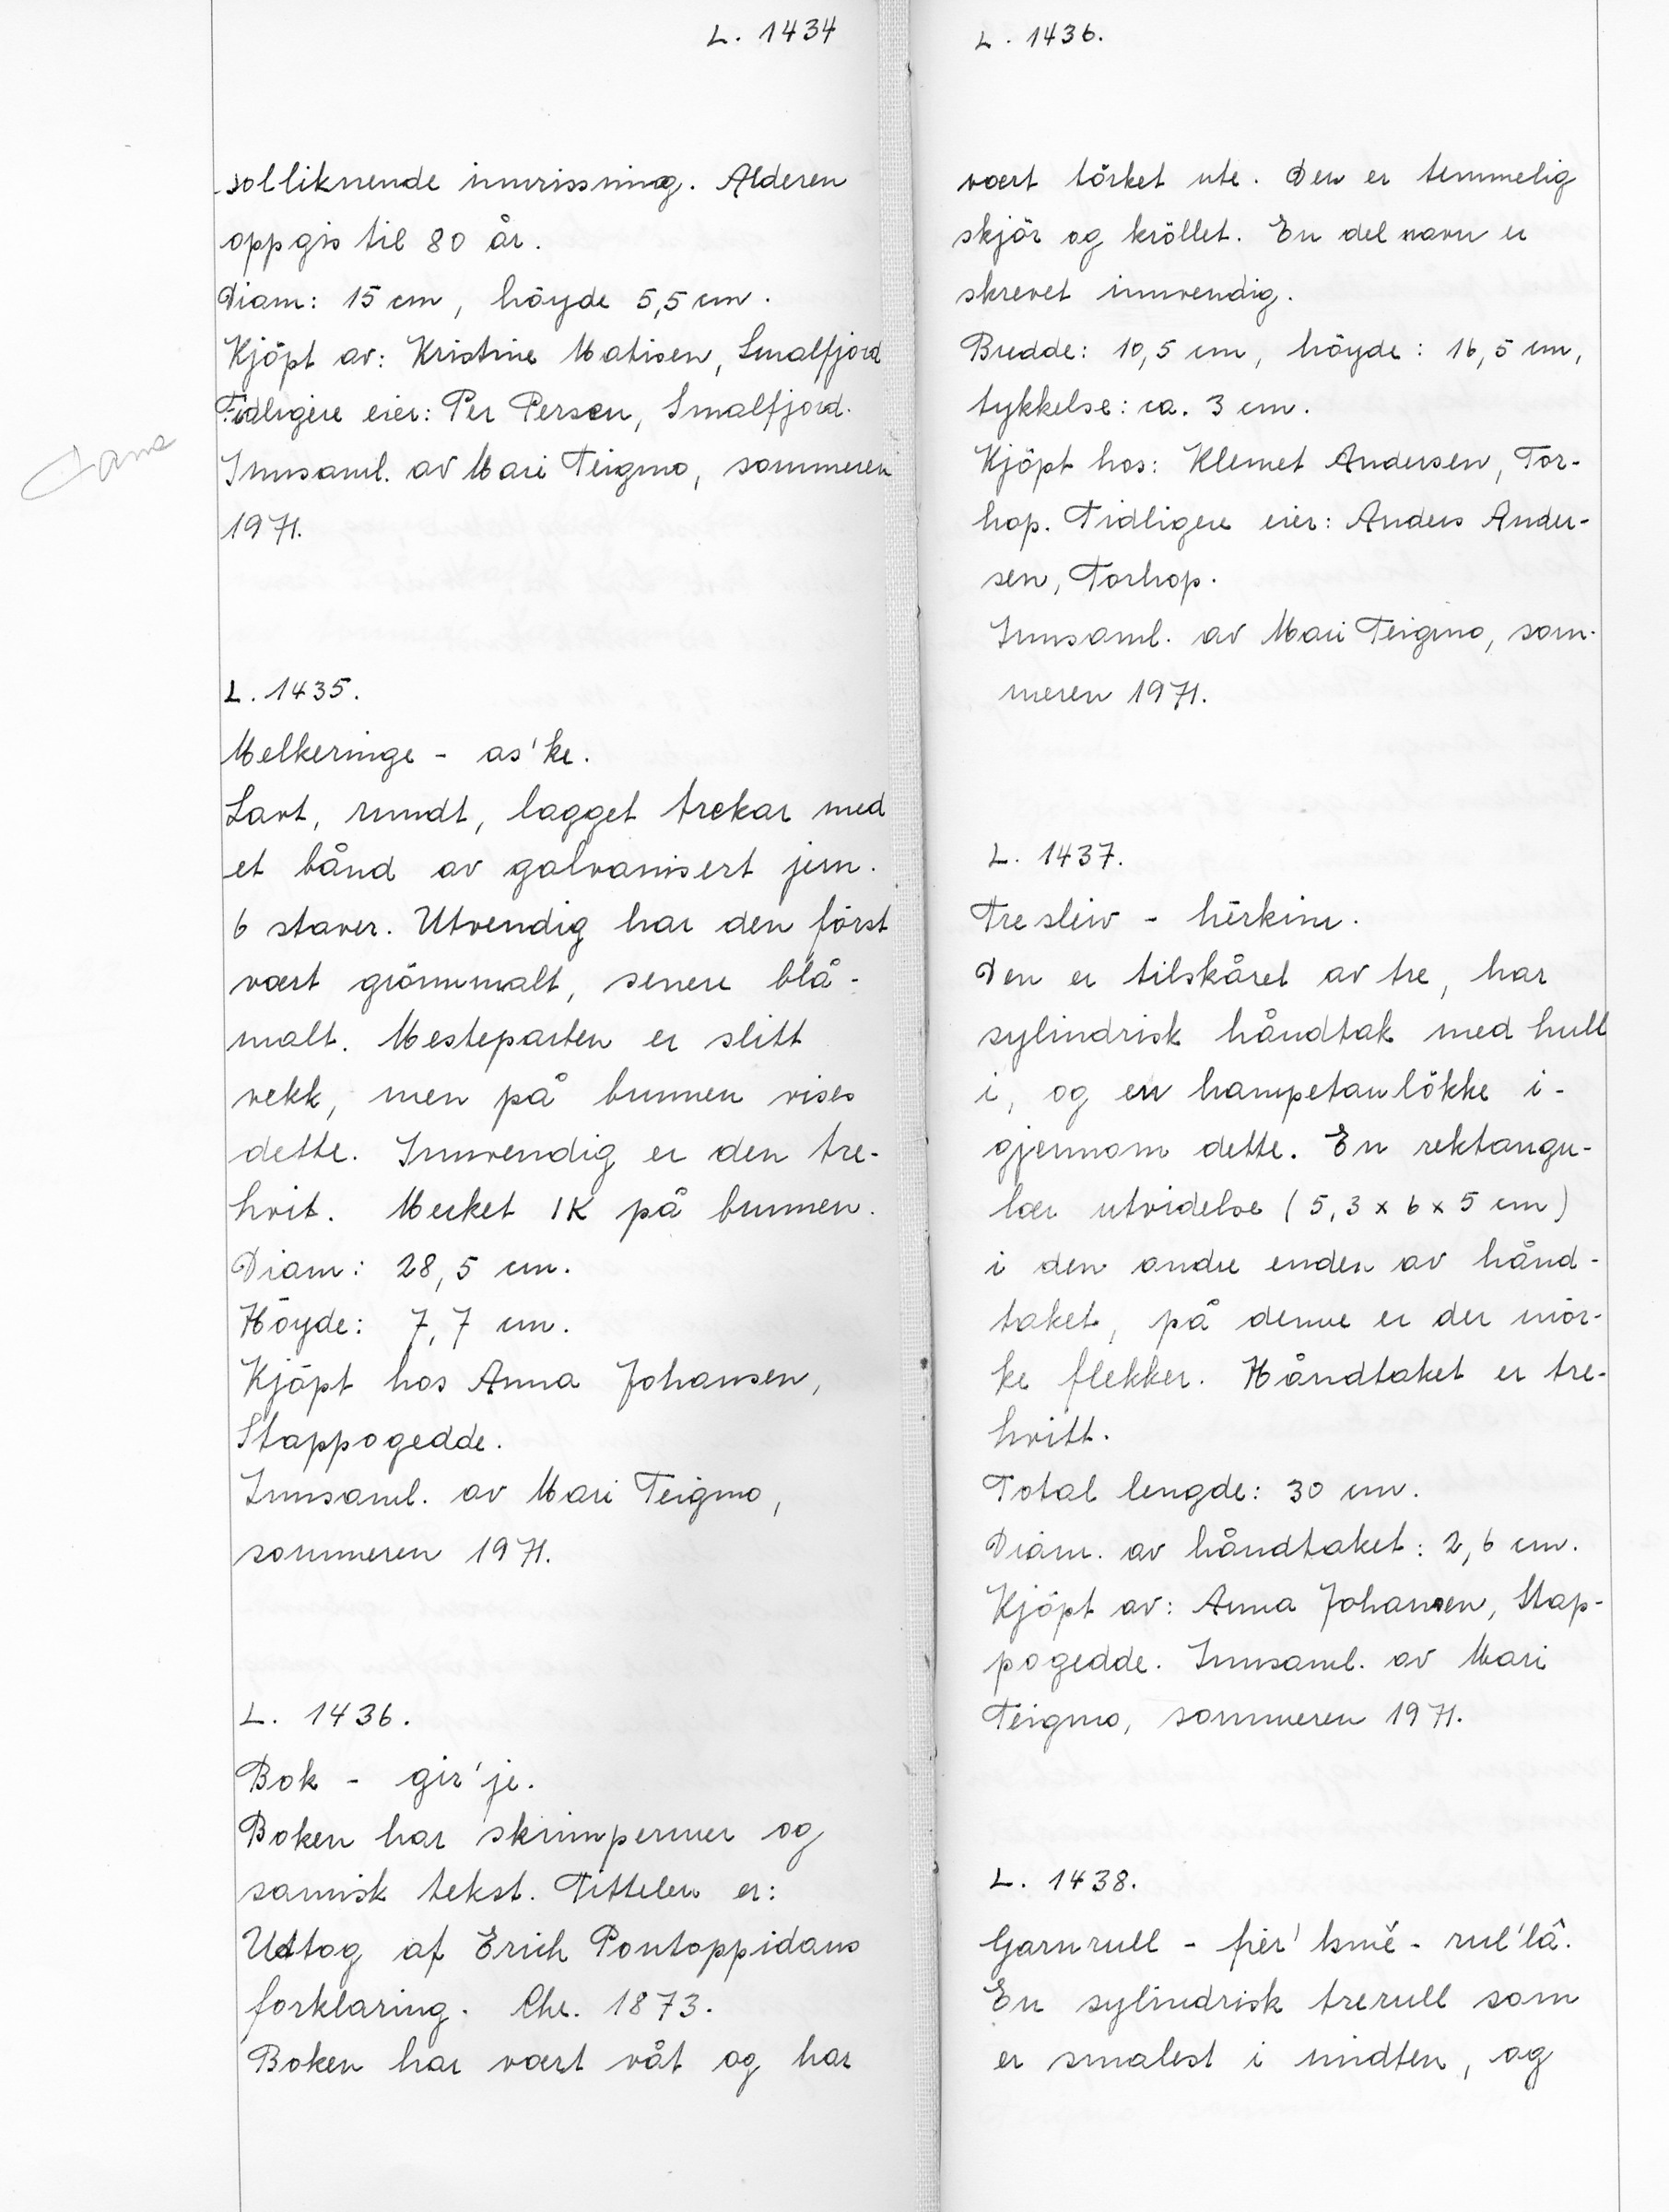 L. 1434
solliknende innrissning. Alderen
oppgis til 80 år.
Diam: 15 cm, höyde 5,5 cm.
Kjöpt av: Kristine Matisen, Smalfjord
Tidligere eier: Per Persen, Smalfjord.
Tana
Innsaml. av Mari Teigmo, sommeren
1971.
L. 1435.
Melkeringe - as'ke.
Lavt, rundt, lagget trekar med
et bånd av galvanisert jern.
6 staver. Utvendig har den först
vært grönnmalt, senere blå-
malt. Mesteparten er slitt
vekk, men på bunnen vises
dette. Innvendig er den tre-
hvit. Merket IK på bunnen.
Diam: 28,5 cm.
Höyde: 7,7 cm.
Kjöpt hos Anna Johansen,
Stappogedde.
Innsaml. av Mari Teigmo,
sommeren 1971.
L. 1436.
Bok - gir'je.
Boken har skinnpermer og
samisk tekst. Tittelen er:
Udtog af Erich Pontoppidans
forklaring. Chr. 1873.
Boken har vært våt og har
L. 1436.
vært törket ute. Den er temmelig
skjör og kröllet. En del navn er
skrevet innvendig.
Bredde: 10,5 cm, höyde: 16,5 cm,
tykkelse: ca. 3 cm.
Kjöpt hos: Klemet Andersen, Tor-
hop. Tidligere eier: Anders Ander-
sen, Torhop.
Innsaml. av Mari Teigmo, som-
meren 1971.
L. 1437.
Tresleiv - hērkim.
Den er tilskåret av tre, har
sylindrisk håndtak med hull
i, og en hampetaulökke i-
gjennom dette. En rektangu-
lær utvidelse (5,3 x 6 x 5 cm)
i den andre enden av hånd-
taket, på denne er der mör-
ke flekker. Håndtaket er tre-
hvitt.
Total lengde: 30 cm.
Diam. av håndtaket: 2,6 cm.
Kjöpt av: Anna Johansen, Stap-
pogedde. Innsaml. av Mari
Teigmo, sommeren 1971.
L. 1438.
Garnrull - rul'lâ.
En sylindrisk trerull som
er smalest i midten, og